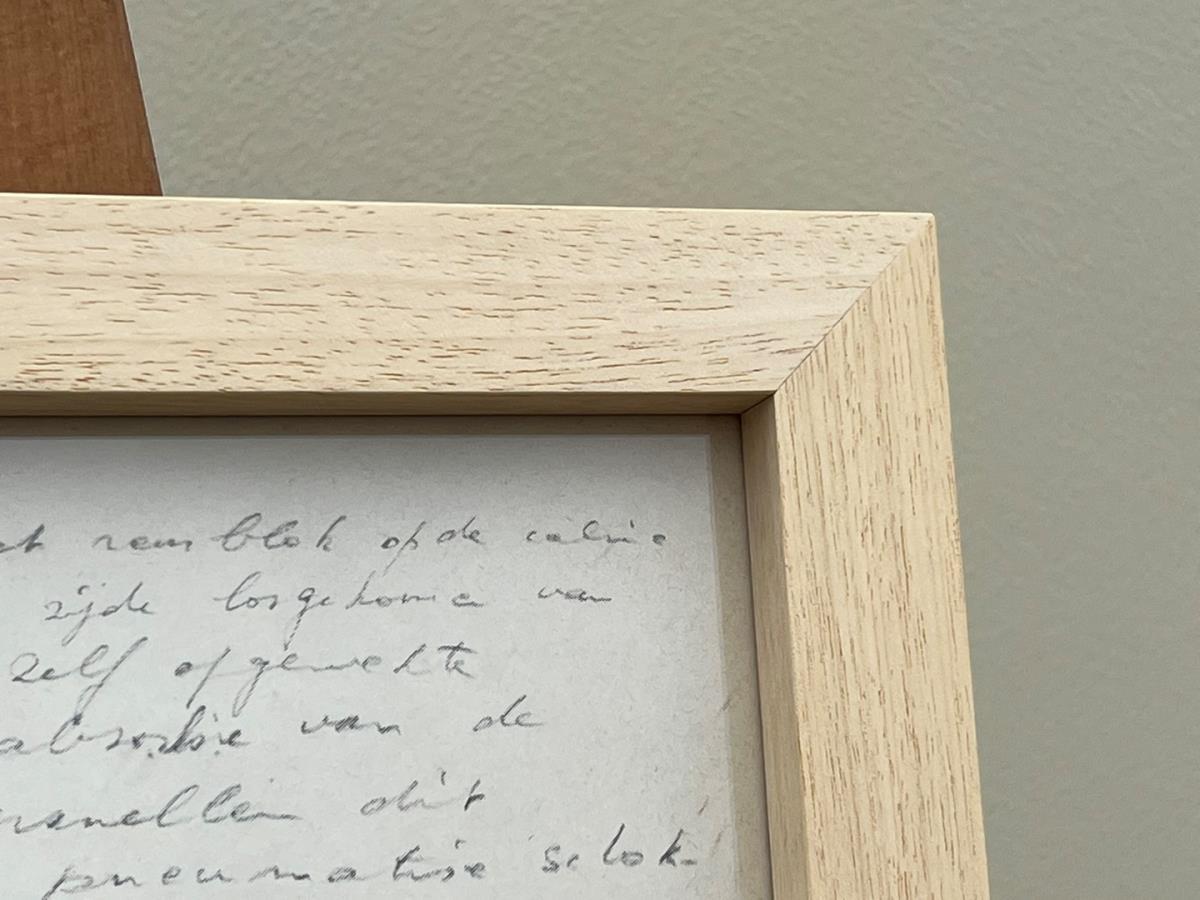 rem blok op de cabine
zijde losgekome van
zelf opgewekte
absorbtie van de
dit
pneumatise schok-